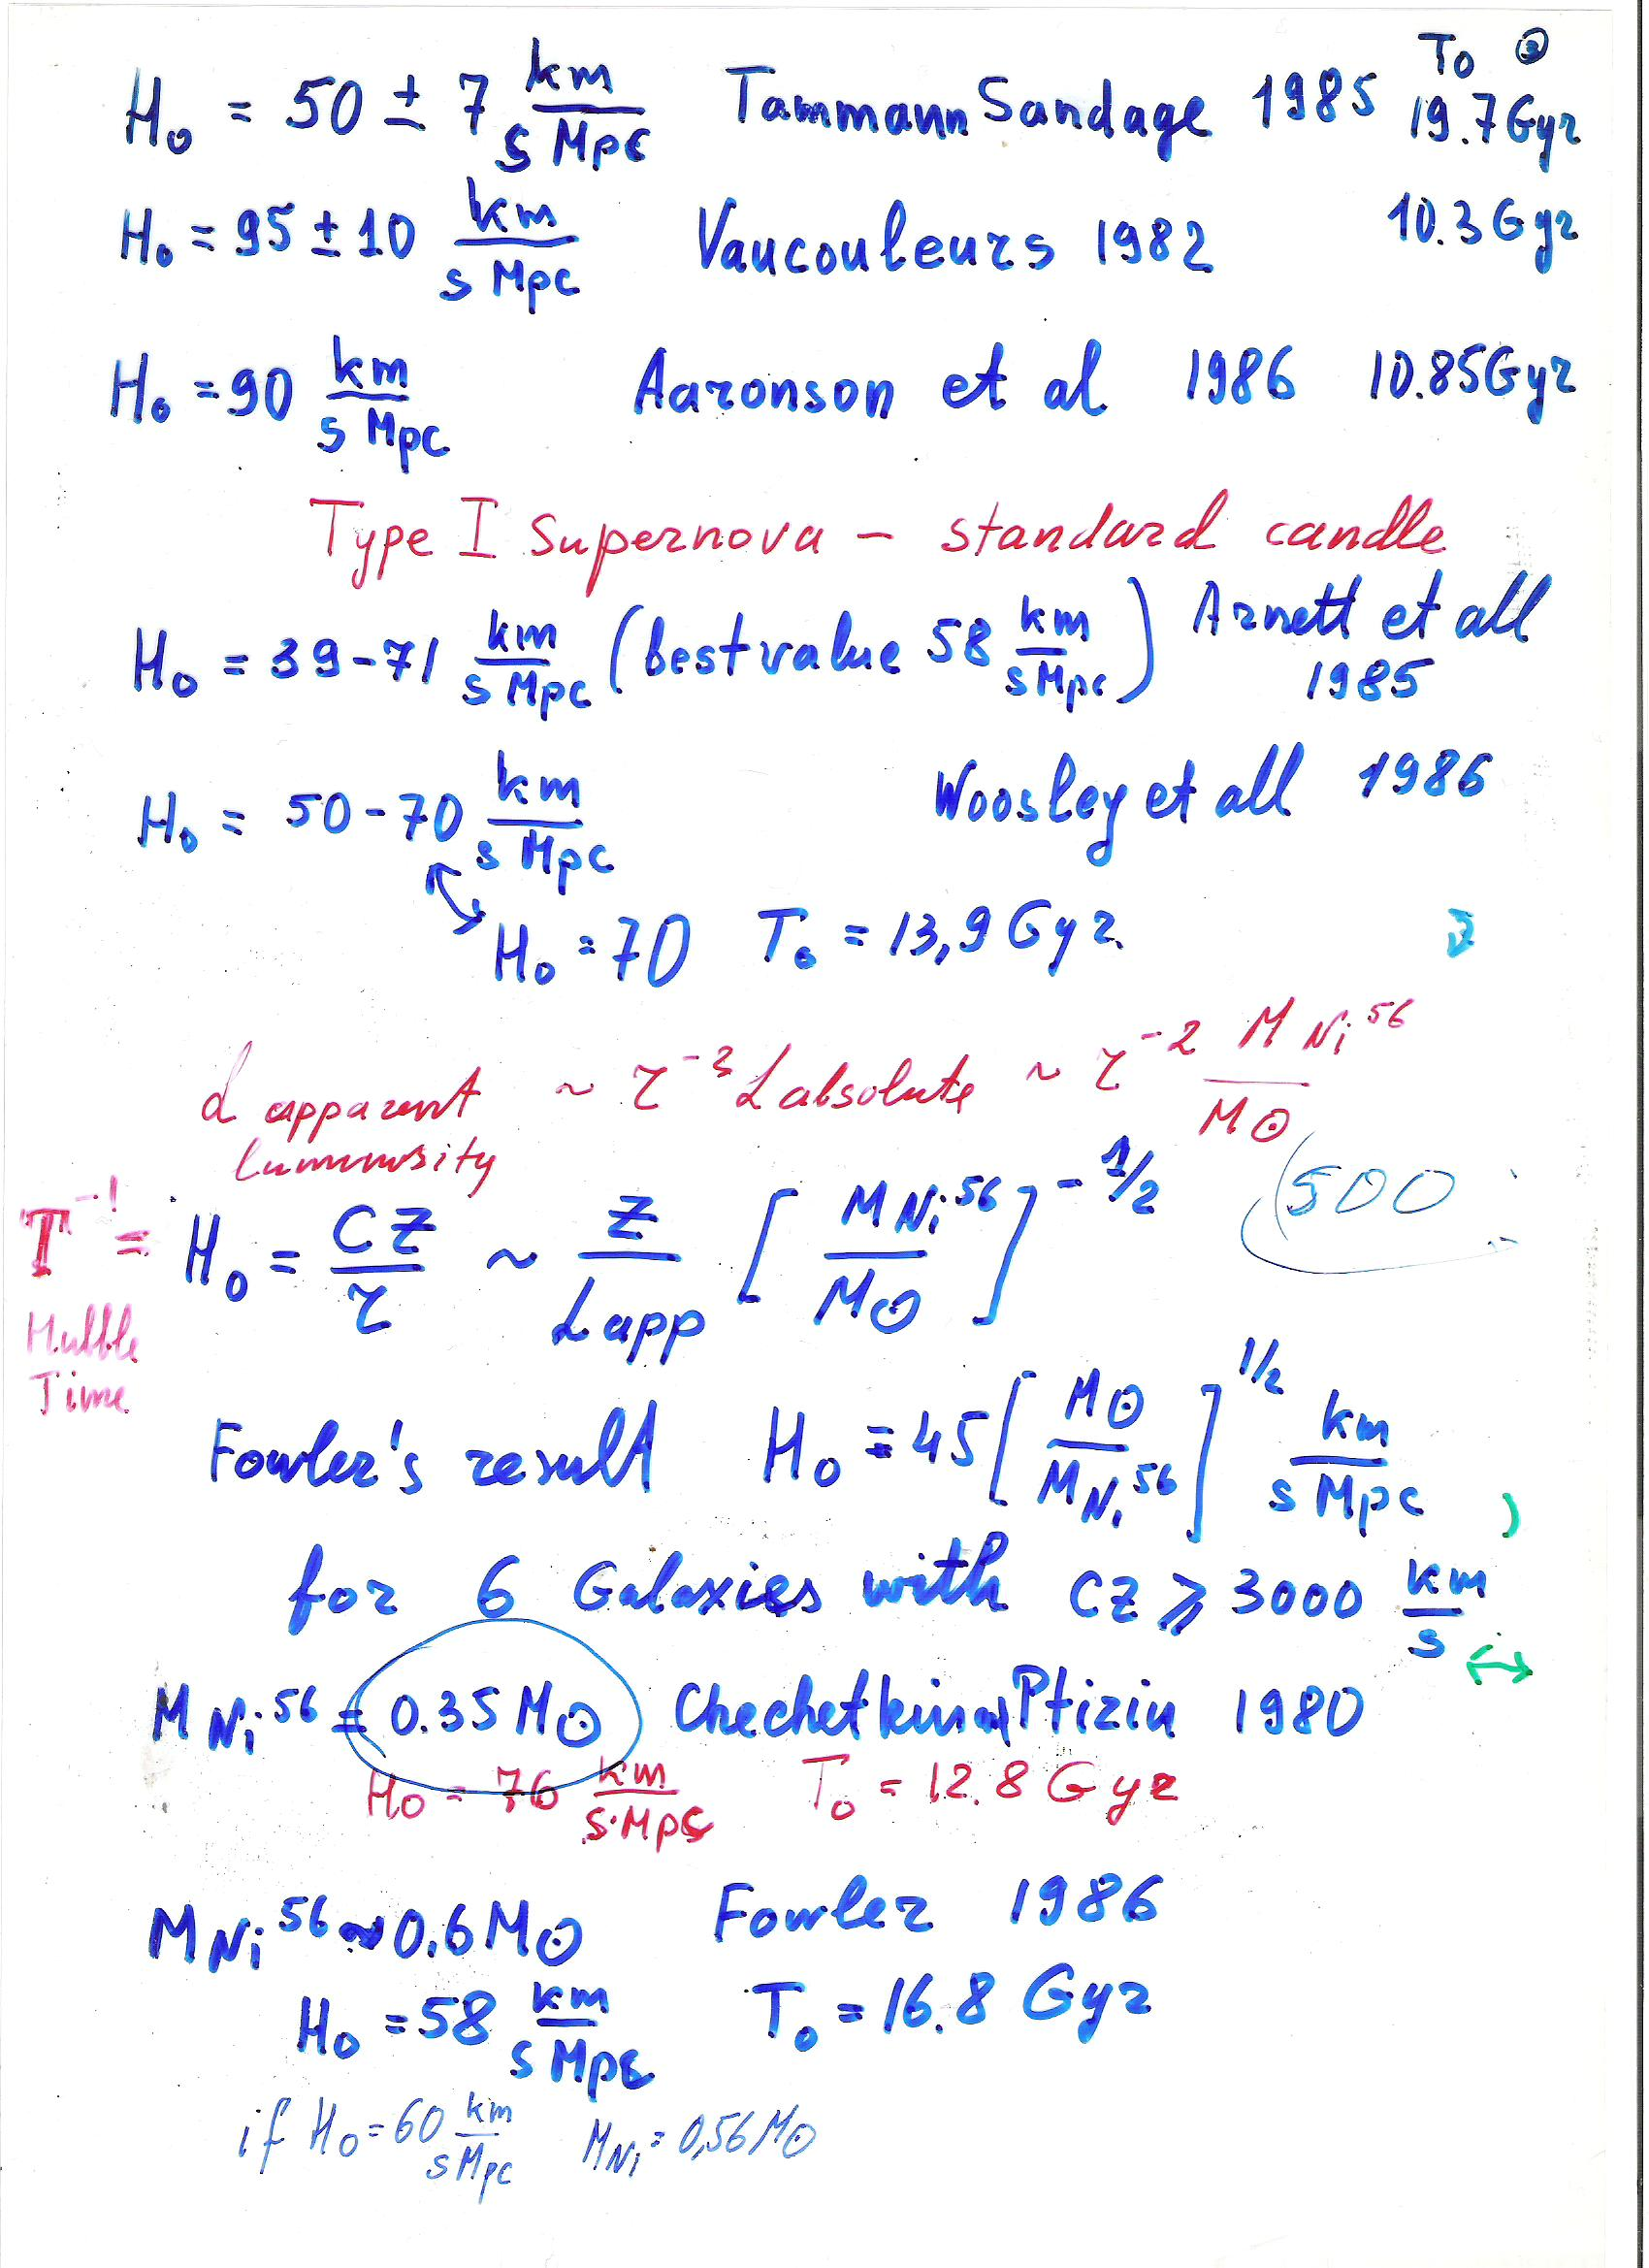 T₀ ②
H₀ = 50 ± 7 km/(s Mpc) Tammann Sandage 1985 19.7 Gyr
H₀ = 95 ± 10 km/(s Mpc) Vaucouleurs 1982 10.3 Gyr
H₀ = 90 km/(s Mpc) Aaronson et al 1986 10.85 Gyr
Type I Supernova – standard candle
H₀ = 39-71 km/(s Mpc) (best value 58 km/(s Mpc)) Arnett et all
1985
H₀ = 50-70 km/(s Mpc) Woosley et all 1986
H₀ = 70 T₀ = 13,9 Gyr
L apparent luminosity ~ r⁻² L absolute ~ r⁻² M Ni⁵⁶/M⊙
T⁻¹ = H₀ = cz/r ~ z/L app [M Ni⁵⁶/M⊙]^(-1/2) (500
Hubble
Time
Fowler's result H₀ = 45 [M⊙/M Ni⁵⁶]^(1/2) km/(s Mpc)
for 6 Galaxies with cz ⩾ 3000 km/s
M Ni⁵⁶ = 0.35 M⊙ Chechetkin and Ptizin 1980
H₀ = 76 km/(s·Mpc) T₀ = 12.8 Gyr
M Ni⁵⁶ ≈ 0.6 M⊙ Fowler 1986
H₀ = 58 km/(s Mpc) T₀ = 16.8 Gyr
if H₀ = 60 km/(s Mpc) M Ni = 0,56 M⊙